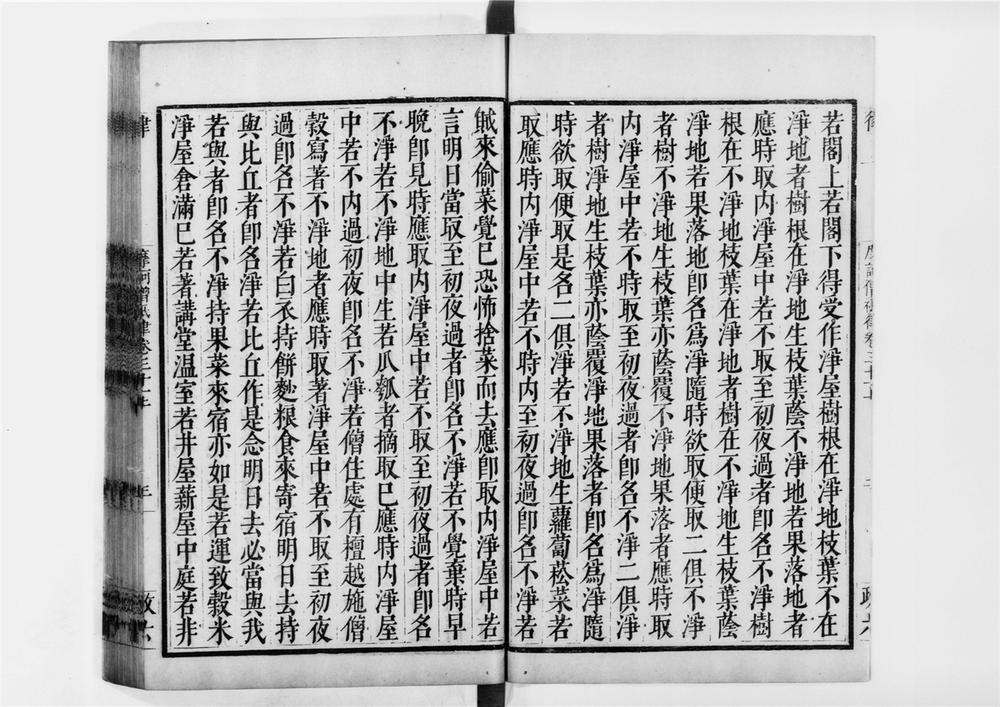 若閣上若閣下得受作淨屋樹根在淨地枝葉不在
淨地者樹根在淨地生枝葉蔭不淨地若果落地者
應時取內淨屋中若不取至初夜過者卽名不淨樹
根在不淨地枝葉在淨地者樹在不淨地生枝葉蔭
淨地若果落地卽名爲淨隨時欲取便取二俱不淨
者樹不淨地生枝葉亦蔭覆不淨地果落者應時取
內淨屋中若不時取至初夜過者卽名不淨二俱淨
者樹淨地生枝葉亦蔭覆淨地果落者卽名爲淨隨
時欲取便取是名二俱淨若不淨地生蘿蔔菘菜若
取應時內淨屋中若不時內至初夜過卽名不淨若
賊來偷菜覺已恐怖捨菜而去應卽取內淨屋中若
言明日當取至初夜過者卽名不淨若不覺棄時早
晚卽見時應取內淨屋中若不取至初夜過者卽名
不淨若不淨地中生若瓜瓠者摘取已應時內淨屋
中若不內過初夜卽名不淨若僧住處有檀越施僧
穀寫著不淨地者應時取著淨屋中若不取至初夜
過卽名不淨若白衣持餅麨粮食來寄宿明日去持
與比丘者卽名淨若比丘作是念明日去必當與我
若與者卽名不淨持果菜來宿亦如是若運致穀米
淨屋倉滿已若著講堂溫室若井屋薪屋中庭若非
律
摩訶僧祇律卷三十一